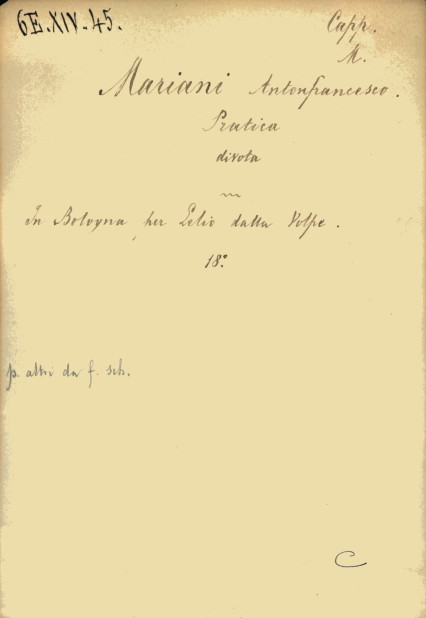 6E.XIV.45.
Capp.
M.
Mariani Antonfrancesco.
Pratica
divota
In Bologna, per Lelio dalla Volpe.
18°
p. altri da f. sch.
C